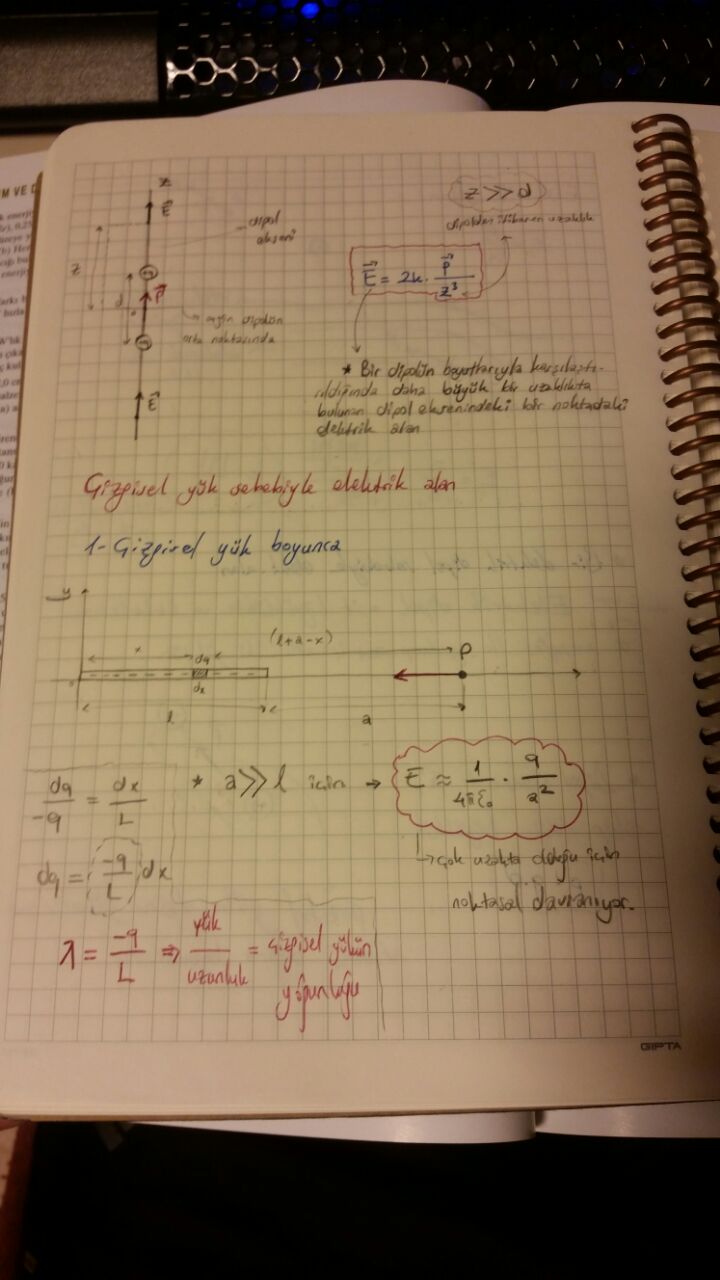 z
E
dipol
ekseni
z >> d
dipolden itibaren uzaklık
E = 2k · P / z³
z
d
P
ağın dipolün
orta noktasında
E
* Bir dipolün boyutlarıyla karşılaştı-
rıldığında daha büyük bir uzaklıkta
bulunan dipol eksenindeki bir noktadaki
elektrik alan
Çizgisel yük sebebiyle elektrik alan
1- Çizgisel yük boyunca
y
x
(l+a-x)
dq
P
dx
l
a
dq / -q = dx / L
* a >> l için → E ≈ 1 / 4πε₀ · q / a²
dq = (-q / L) dx
↳ çok uzakta olduğu için
noktasal davranıyor.
λ = -q / L ⇒ yük / uzunluk = çizgisel yükün
yoğunluğu
GIPTA